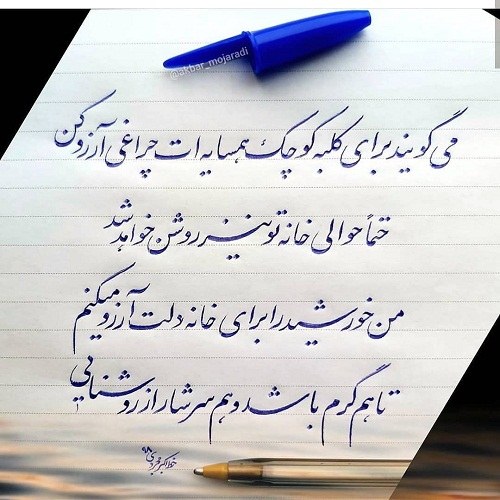 @akbar_mojaradi
می گویند برای کلبه کوچک همسایه ات چراغی آرزو کن
حتماً حوالی خانه تو نیز روشن خواهد شد
من خورشید را برای خانه دلت آرزو میکنم
تا هم گرم باشد و هم سرشار از روشنایی
خط اکبر مجردی ۹۸